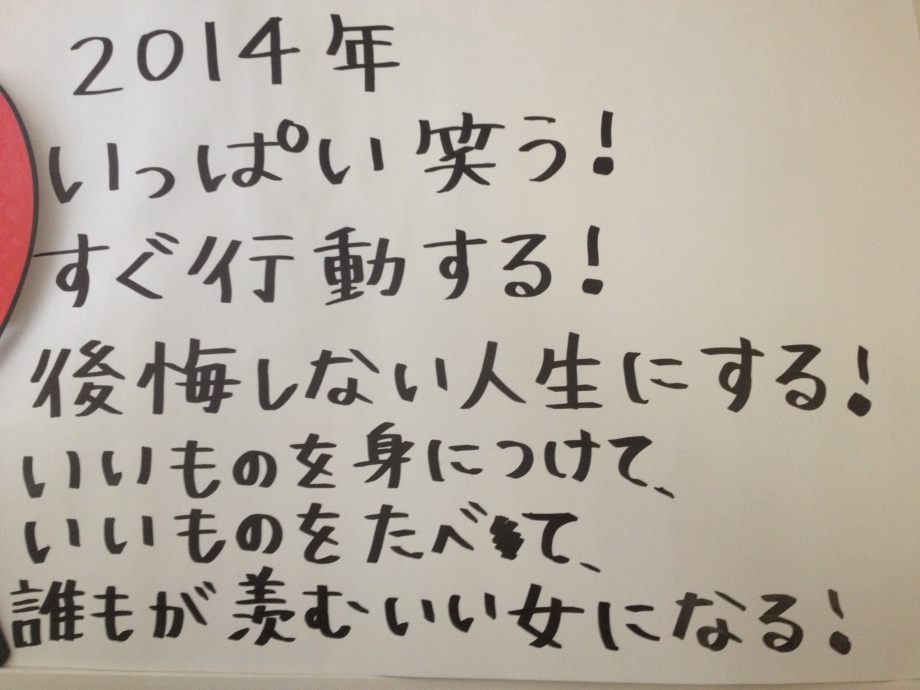 2014年
いっぱい笑う!
すぐ行動する!
後悔しない人生にする!
いいものを身につけて、
いいものをたべて、
誰もが羨むいい女になる!